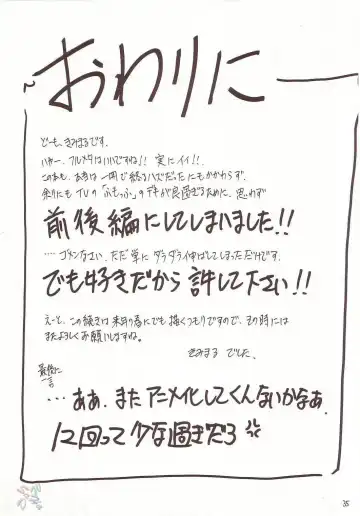 おわりに
どーも、きみまるです。
いやー、フルメタはいいですね!! 実にイイ!!
この本も、本当は一回で終るハズだったにもかかわらず、
余りにもTVの「ふもっふ」のデキが良過ぎるために、思わず
前後編にしてしまいました!!
…ゴメンなさい、ただ単にダラダラ伸ばしてしまっただけです。
でも好きだから許して下さい!!
えーと、この続きは来年の春にでも描くつもりですので、その時には
またよろしくお願いしますね。
きみまる でした。
最後に
一言
…ああ、またアニメ化してくんないかなぁ。
12回って少な過ぎだろ
35